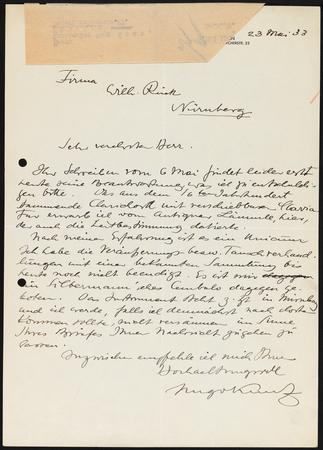 23 Mai 33
Firma
Wilh. Rück
Nürnberg
Sehr verehrter Herr.
Ihr Schreiben vom 6 Mai findet leider erst
heute seine Beantwortung, was ich zu entschuldi-
gen bitte. Das aus dem 16ten Jahrhundert
stammende Clavichord mit verschiebbarer Clavia
tur erwarb ich vom Antiquar Lämmle, hier,
der auch die Zeitbestimmung datierte.
Nach meiner Erfahrung ist es ein Unicum
Ich habe die Veräusserungs bezw. Tauschverhand-
lungen mit einer bekannten Sammlung bis
heute noch nicht beendigt. Es ist mir
ein Silbermann'sches Cembalo dagegen ge-
boten. Das Instrument steht z. Zt in Nürnberg
und ich werde, falls ich demnächst nach dort
kommen sollte, nicht versäumen im Sinne
Ihres Briefes Ihnen Nachricht zugehen zu
lassen.
Inzwischen empfehle ich mich Ihnen
Hochachtungsvoll